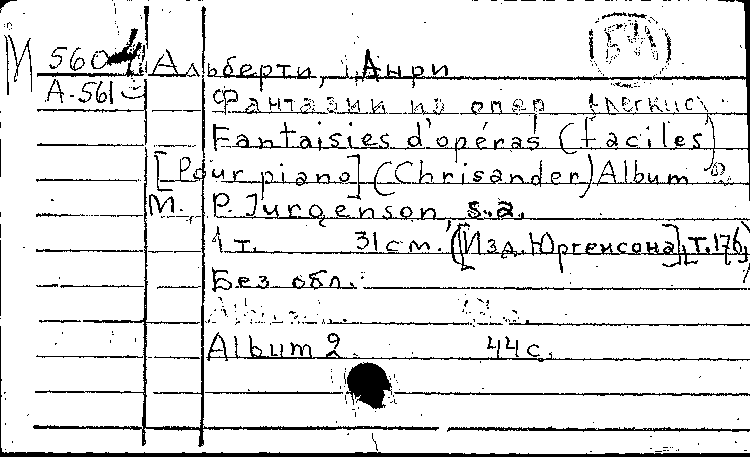 М 560
А-561
БИ
Альберти, Анри
Фантазии из опер (легкие)
Fantaisies d'opéras (faciles)
[Pour piano] (Chrisander) Album 2
М., P. Jurgenson, s.a.
1 т. 31 см. ([Изд. Юргенсона], т. 176)
Без обл.
Album 2. 44 с.